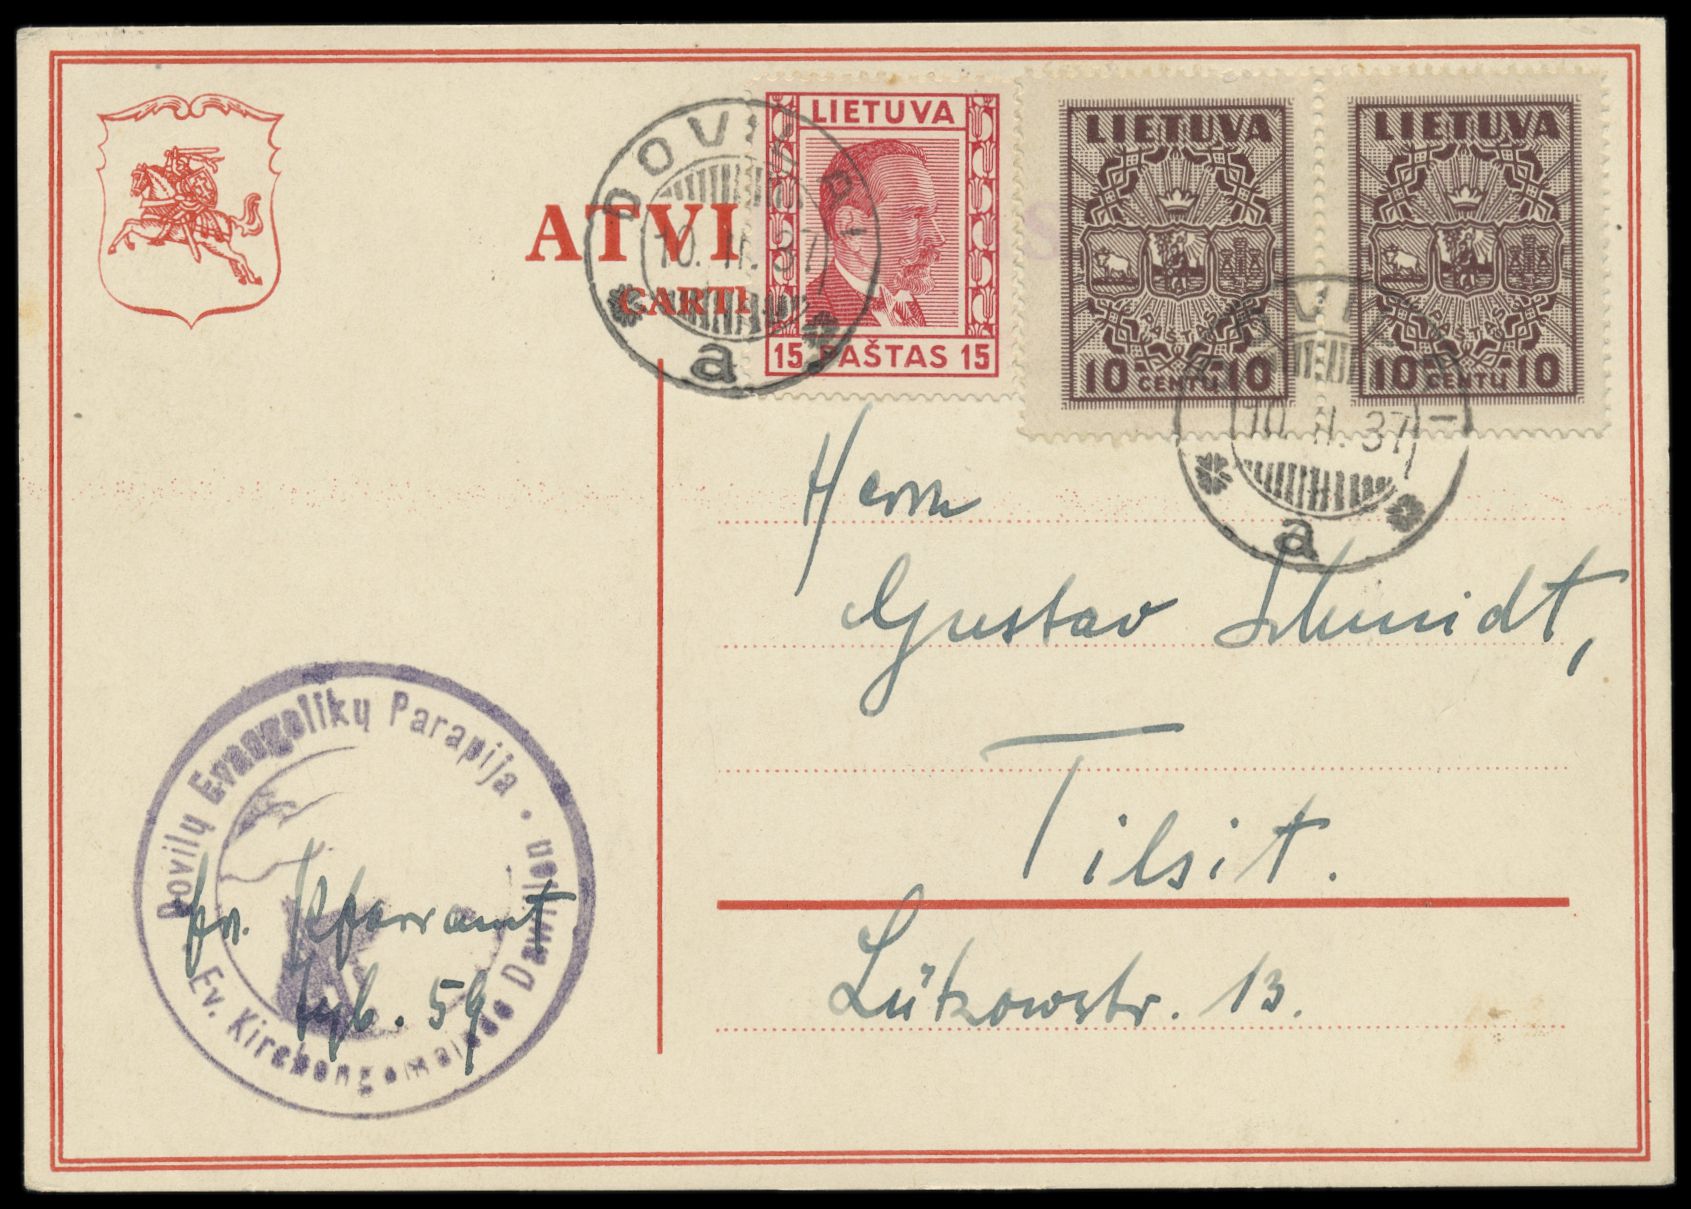 ATVI
CARTE
LIETUVA
15 PAŠTAS 15
LIETUVA
PAŠTAS
10 CENTŲ 10
LIETUVA
PAŠTAS
10 CENTŲ 10
DOVILAI
10. II. 37
a
10. II. 37
a
Herrn
Gustav Schmidt,
Tilsit.
Lützowstr. 13.
Dovilų Evangelikų Parapija
Ev. Kirchengemeinde Dawillen
Pfarramt
59